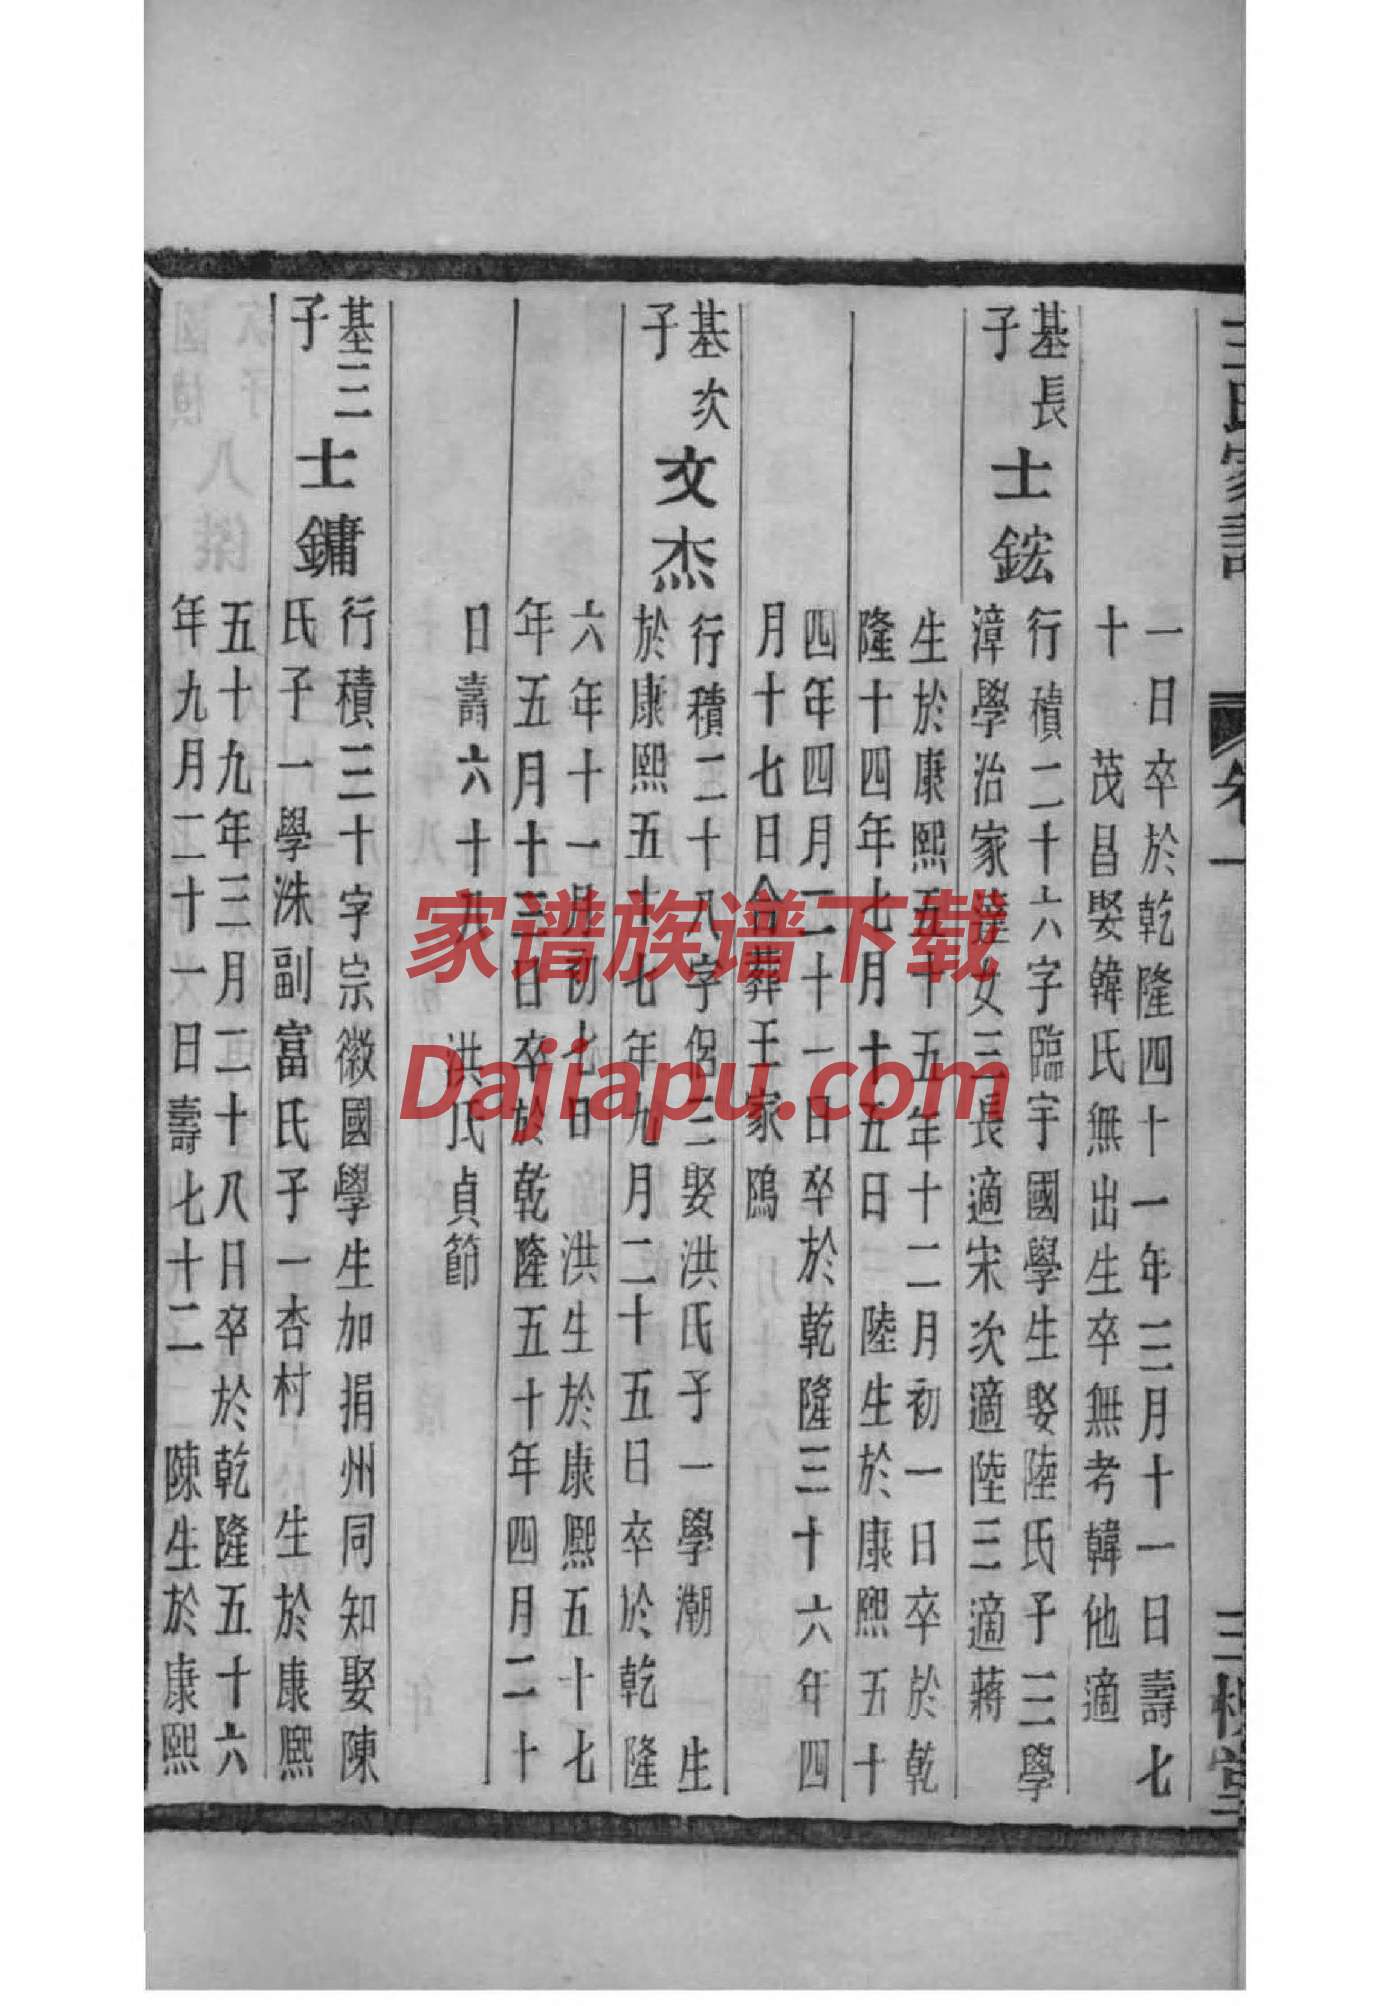 王氏家譜
卷一
三槐堂
一日卒於乾隆四十一年三月十一日壽七
十 茂昌娶韓氏無出生卒無考韓他適
基長
子
士鋐
行積二十六字臨宇國學生娶陸氏子三學
漳學治家達女三長適宋次適陸三適蔣
生於康熙五十五年十二月初一日卒於乾
隆十四年七月十五日 陸生於康熙五十
四年四月二十一日卒於乾隆三十六年四
月十七日合葬王家隝
基次
子
文杰
行積二十八字侶三娶洪氏子一學潮 生
於康熙五十七年九月二十五日卒於乾隆
六年十一月初七日 洪生於康熙五十七
年五月十三日卒於乾隆五十年四月二十
日壽六十九 洪氏貞節
基三
子
士鏞
行積三十字宗徽國學生加捐州同知娶陳
氏子一學洙副富氏子一杏村 生於康熙
五十九年三月二十八日卒於乾隆五十六
年九月二十一日壽七十二 陳生於康熙
家谱族谱下载
Dajiapu.com